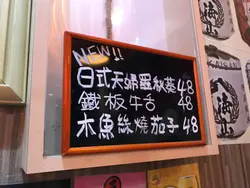 NEW!!
日式天婦羅秋葵48
鐵板牛舌 48
木魚絲燒茄子48
八海山